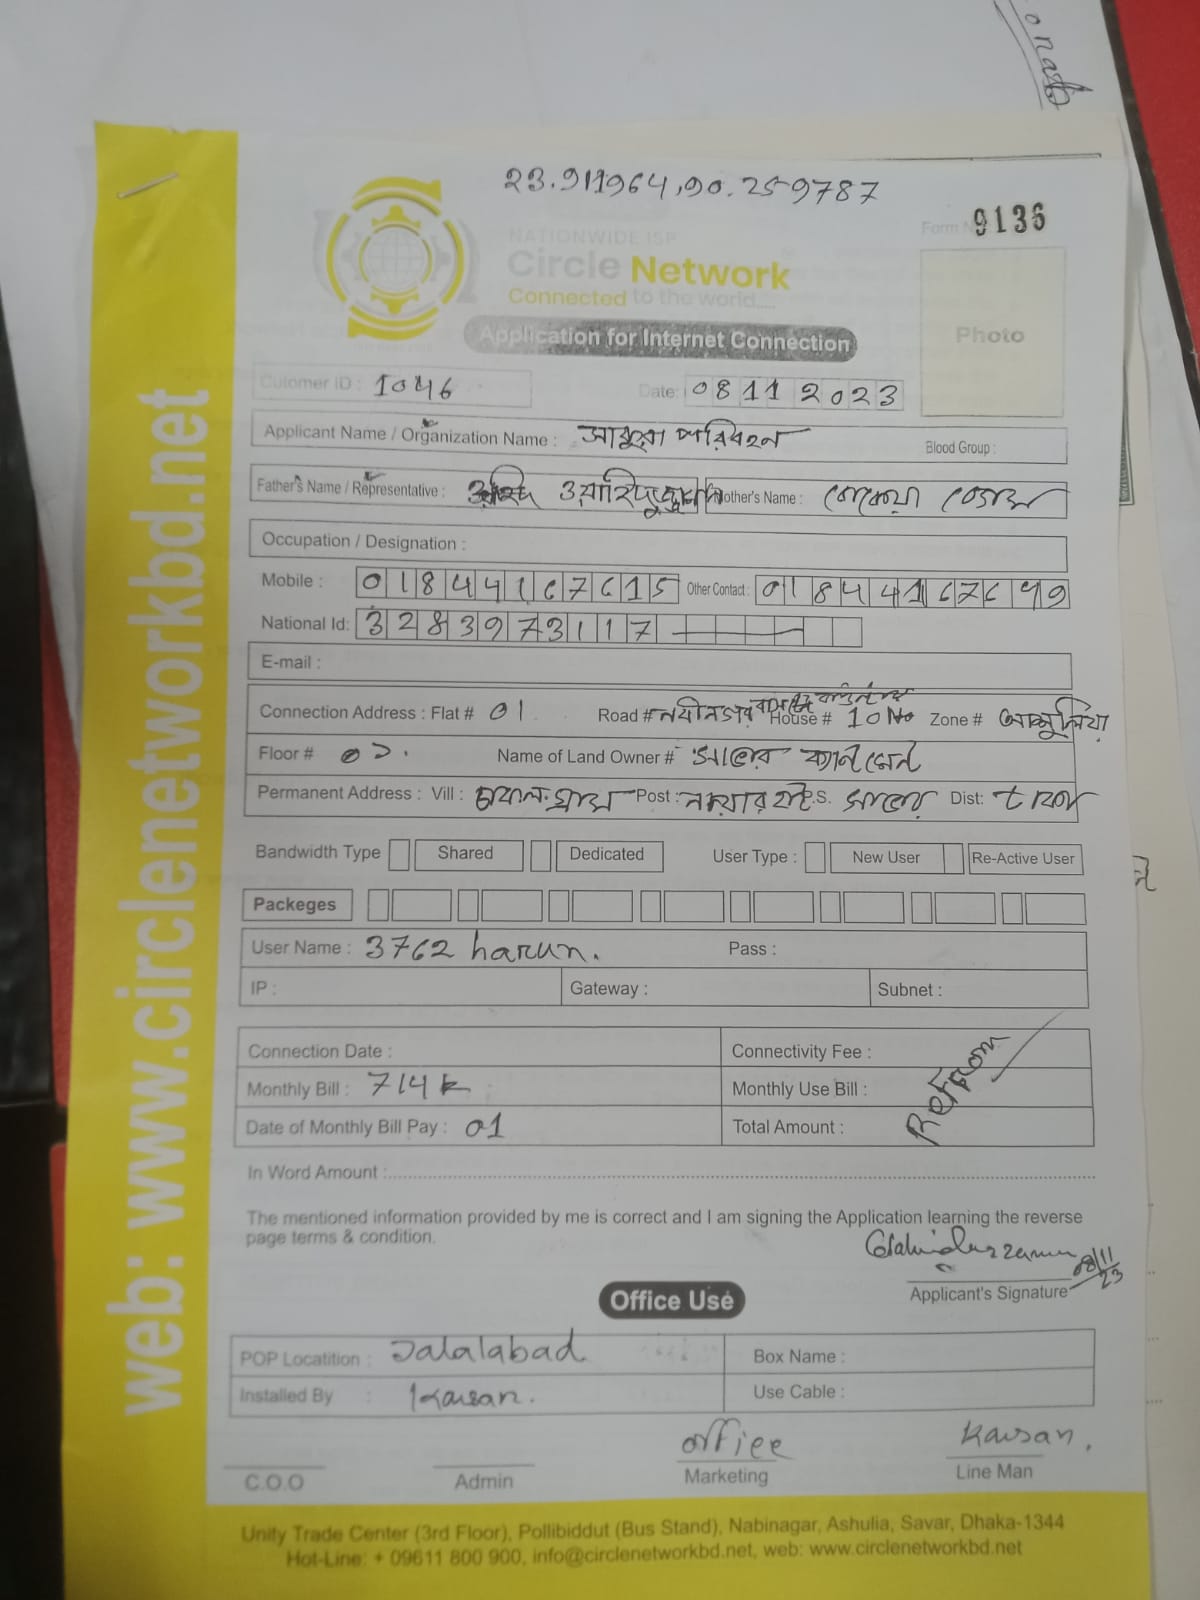 23.911964,90.259787
NATIONWIDE ISP
Form 9136
Circle Network
Connected to the world....
Photo
Application for Internet Connection
Cutomer ID : 1046 Date: 08 11 2023
Applicant Name / Organization Name : পরিবহন Blood Group :
Father's Name / Representative : ওয়াহিদুজ্জামান Mother's Name : বেগম
Occupation / Designation :
Mobile : 01844167615 Other Contact : 01844167649
National Id: 3283973117
E-mail :
Connection Address : Flat # 01 Road # নবীনগর House # 10 No Zone # আশুলিয়া
Floor # ০১. Name of Land Owner #
Permanent Address : Vill : Post : P.S. সাভার Dist: ঢাকা
Bandwidth Type Shared Dedicated User Type : New User Re-Active User
Packeges
User Name : 3762 harun. Pass :
IP : Gateway : Subnet :
Connection Date : Connectivity Fee :
Monthly Bill : 714 Monthly Use Bill :
Date of Monthly Bill Pay : 01 Total Amount :
In Word Amount :
The mentioned information provided by me is correct and I am signing the Application learning the reverse
page terms & condition.
08/11/23
Applicant's Signature
Office Use
POP Locatition : Jalalabad Box Name :
Installed By : Kawsan. Use Cable :
office Kawsan.
C.O.O Admin Marketing Line Man
Unity Trade Center (3rd Floor), Pollibiddut (Bus Stand), Nabinagar, Ashulia, Savar, Dhaka-1344
Hot-Line: + 09611 800 900, info@circlenetworkbd.net, web: www.circlenetworkbd.net
web: www.circlenetworkbd.net